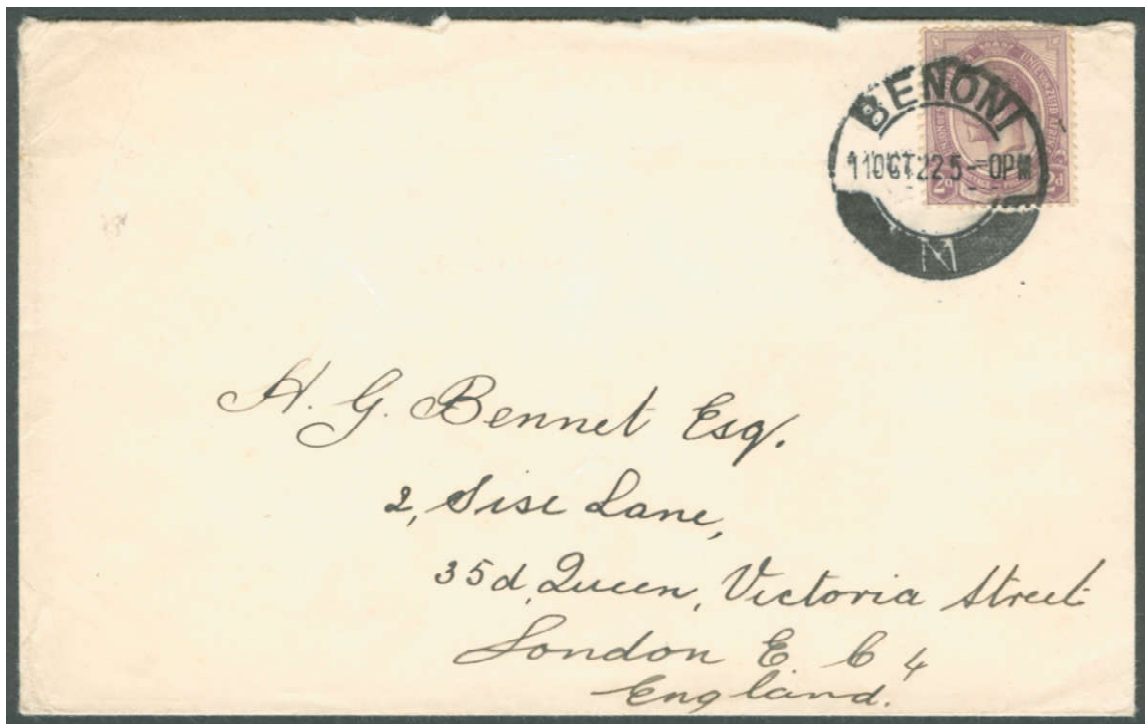 BENONI
11OCT22 5-0PM
2d 2d
M
H. G. Bennet Esq.
2, Sise Lane,
35d, Queen, Victoria Street
London E. C 4
England.